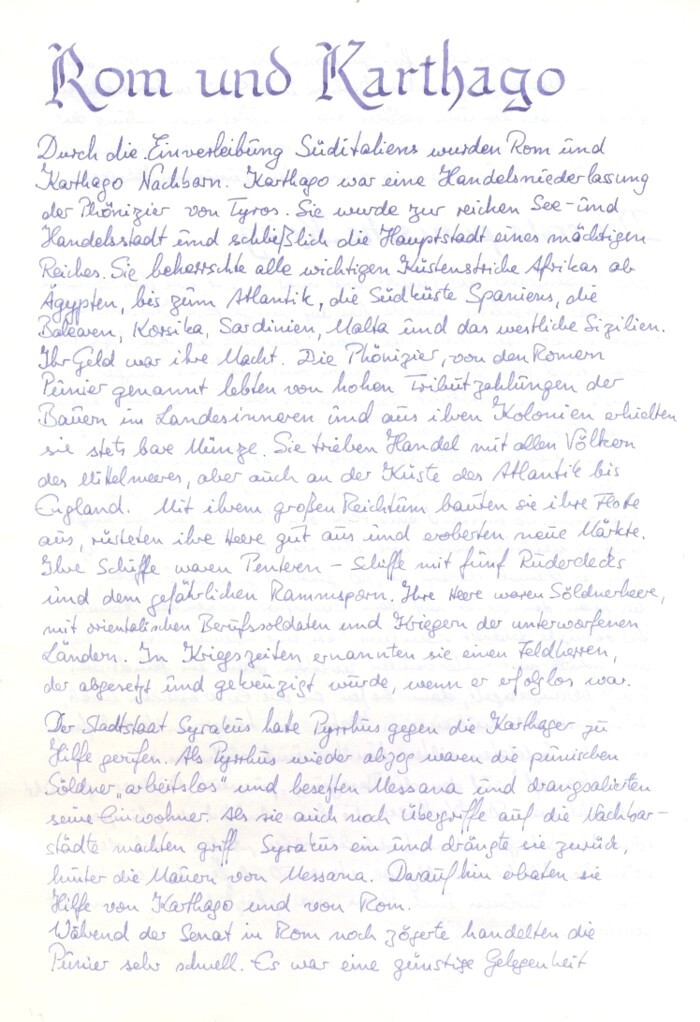 Rom und Karthago
Durch die Einverleibung Süditaliens wurden Rom und
Karthago Nachbarn. Karthago war eine Handelsniederlassung
der Phönizier von Tyros. Sie wurde zur reichen See- und
Handelsstadt und schließlich die Hauptstadt eines mächtigen
Reiches. Sie beherrschte alle wichtigen Küstenstriche Afrikas ab
Ägypten, bis zum Atlantik, die Südküste Spaniens, die
Balearen, Korsika, Sardinien, Malta und das westliche Sizilien.
Ihr Geld war ihre Macht. Die Phönizier, von den Römern
Punier genannt lebten von hohen Tributzahlungen der
Bauern im Landesinneren und aus ihren Kolonien erhielten
sie stets bare Münze. Sie trieben Handel mit allen Völkern
des Mittelmeeres, aber auch an der Küste des Atlantik bis
England. Mit ihrem großen Reichtum bauten sie ihre Flotte
aus, rüsteten ihre Heere gut aus und eroberten neue Märkte.
Ihre Schiffe waren Penteren – Schiffe mit fünf Ruderdecks
und dem gefährlichen Rammsporn. Ihre Heere waren Söldnerheere,
mit orientalischen Berufssoldaten und Kriegern der unterworfenen
Ländern. In Kriegszeiten ernannten sie einen Feldherren,
der abgesetzt und gekreuzigt wurde, wenn er erfolglos war.
Der Stadtstaat Syrakus hate Pyrrhus gegen die Karthager zu
Hilfe gerufen. Als Pyrrhus wieder abzog waren die punischen
Söldner „arbeitslos“ und besetzten Messana und drangsalierten
seine Einwohner. Als sie auch noch Übergriffe auf die Nachbar-
städte machten griff Syrakus ein und drängte sie zurück,
hinter die Mauern von Messana. Daraufhin erbaten sie
Hilfe von Karthago und von Rom.
Während der Senat in Rom noch zögerte handelten die
Punier sehr schnell. Es war eine günstige Gelegenheit